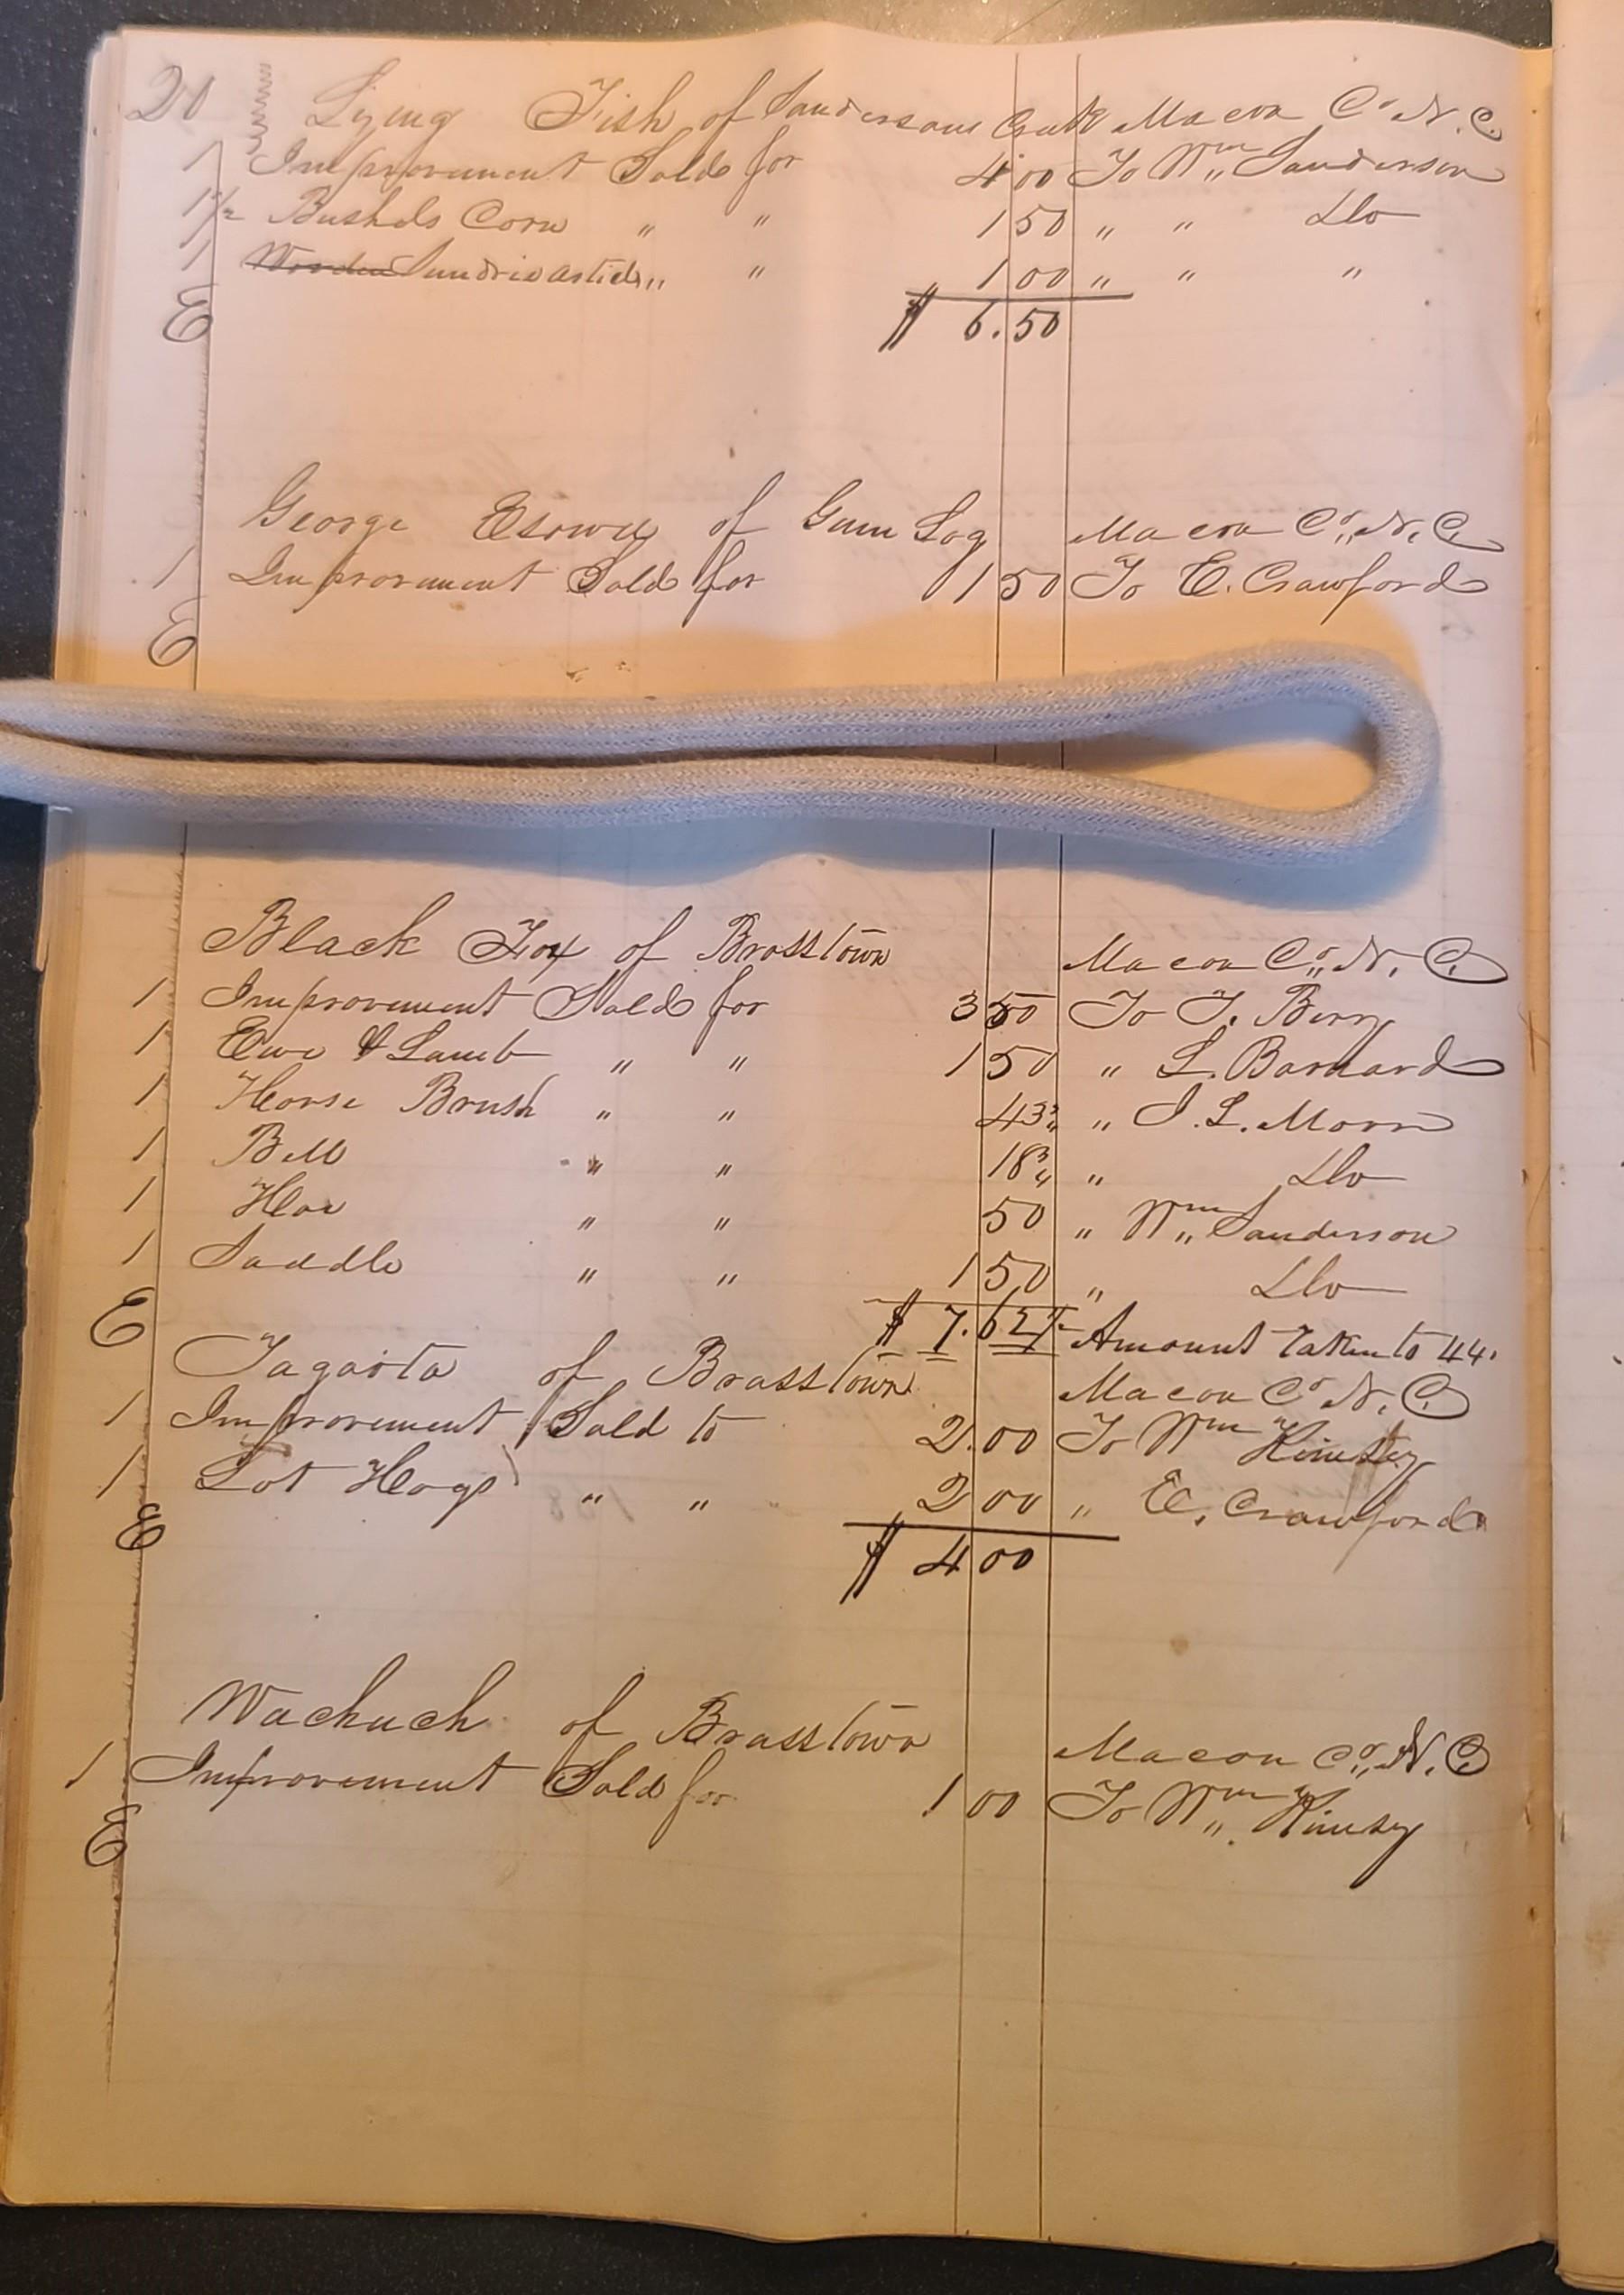 20 Lying Fish of Sandersons Creek Macon Co. N.C.
1 Improvement Sold for 4 00 To Wm Sanderson
1 1/2 Bushels Corn " " 1 50 " " Do
1 Wooden Sundries articles " " 1 00 " " "
E $ 6.50
George Esowee of Gum Log Macon Co. N.C.
1 Improvement Sold for 1 50 To E. Crawford
E
Black Fox of Brasstown Macon Co. N.C.
1 Improvement Sold for 3 50 To T. Berry
1 Ewe & Lamb " " 1 50 " L. Barnard
1 Horse Brush " " 43 3/4 " J. L. Moore
1 Bell " " 18 3/4 " Do
1 Hoe " " 50 " Wm Sanderson
1 Saddle " " 1 50 " Do
E $ 7.62 1/2 Amount Taken to 44.
Tagaota of Brasstown Macon Co. N.C.
1 Improvement Sold to 2.00 To Wm Kimsey
1 Lot Hogs " " 2 00 " E. Crawford
E $ 4 00
Wachuch of Brasstown Macon Co. N.C.
1 Improvement Sold for 1 00 To Wm Kimsey
E